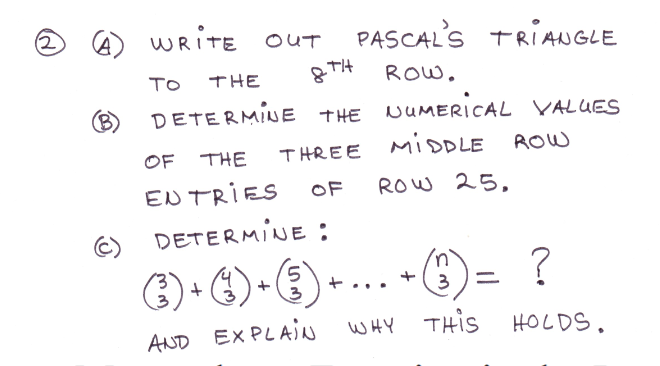 ② Ⓐ WRITE OUT PASCAL'S TRIANGLE
TO THE 8TH ROW.
Ⓑ DETERMINE THE NUMERICAL VALUES
OF THE THREE MIDDLE ROW
ENTRIES OF ROW 25.
Ⓒ DETERMINE :
(3 3) + (4 3) + (5 3) + ... + (n 3) = ?
AND EXPLAIN WHY THIS HOLDS.